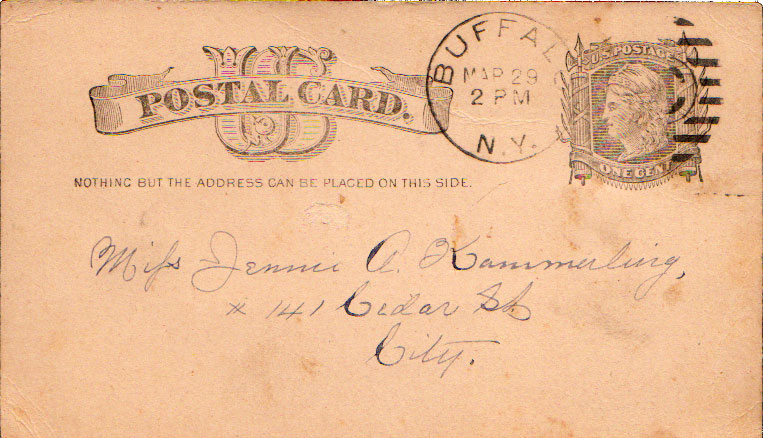 US
POSTAL CARD.
BUFFALO
MAR 29
2 PM
N.Y.
U.S. POSTAGE
ONE CENT
NOTHING BUT THE ADDRESS CAN BE PLACED ON THIS SIDE.
Miss Jennie A. Kammerling,
# 141 Cedar St
City.